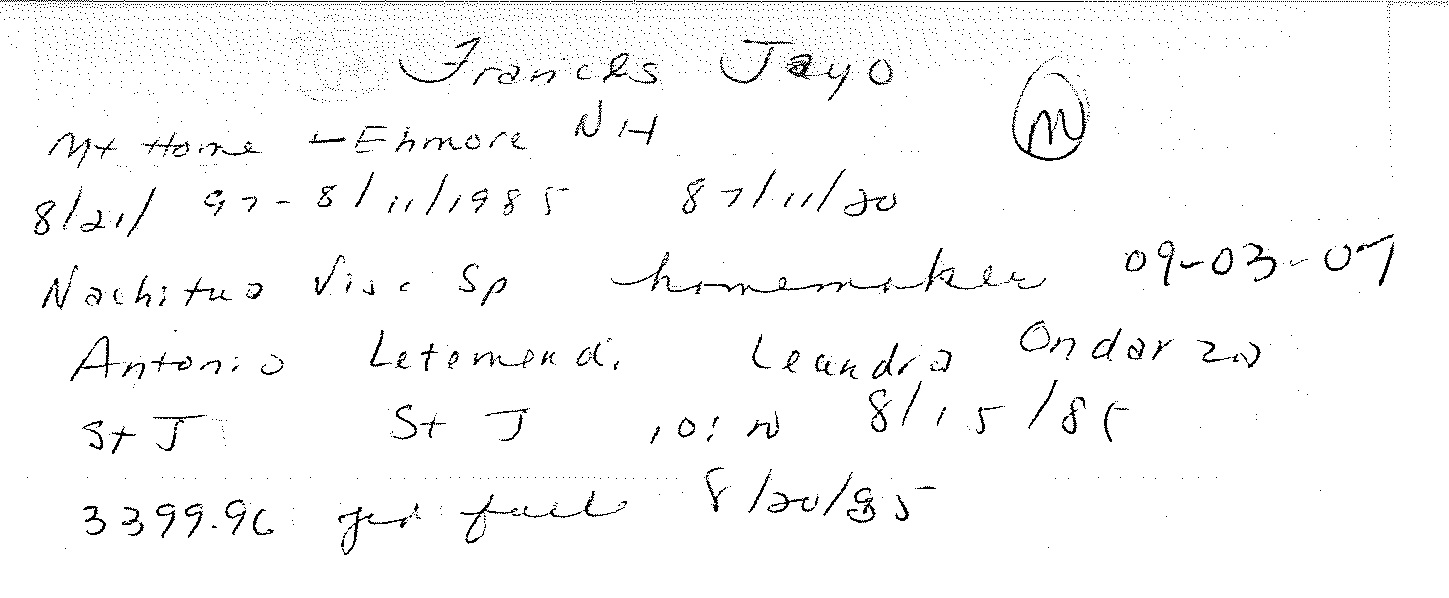 Frances Jayo
M
Mt Home - Elmore NH
8/21/97 - 8/11/1985 87/11/20
Nachitua Visc Sp homemaker 09-03-07
Antonio Letemendi Leandra Ondarza
St J St J 10: 8/15/85
3399.96 pd full 8/20/85